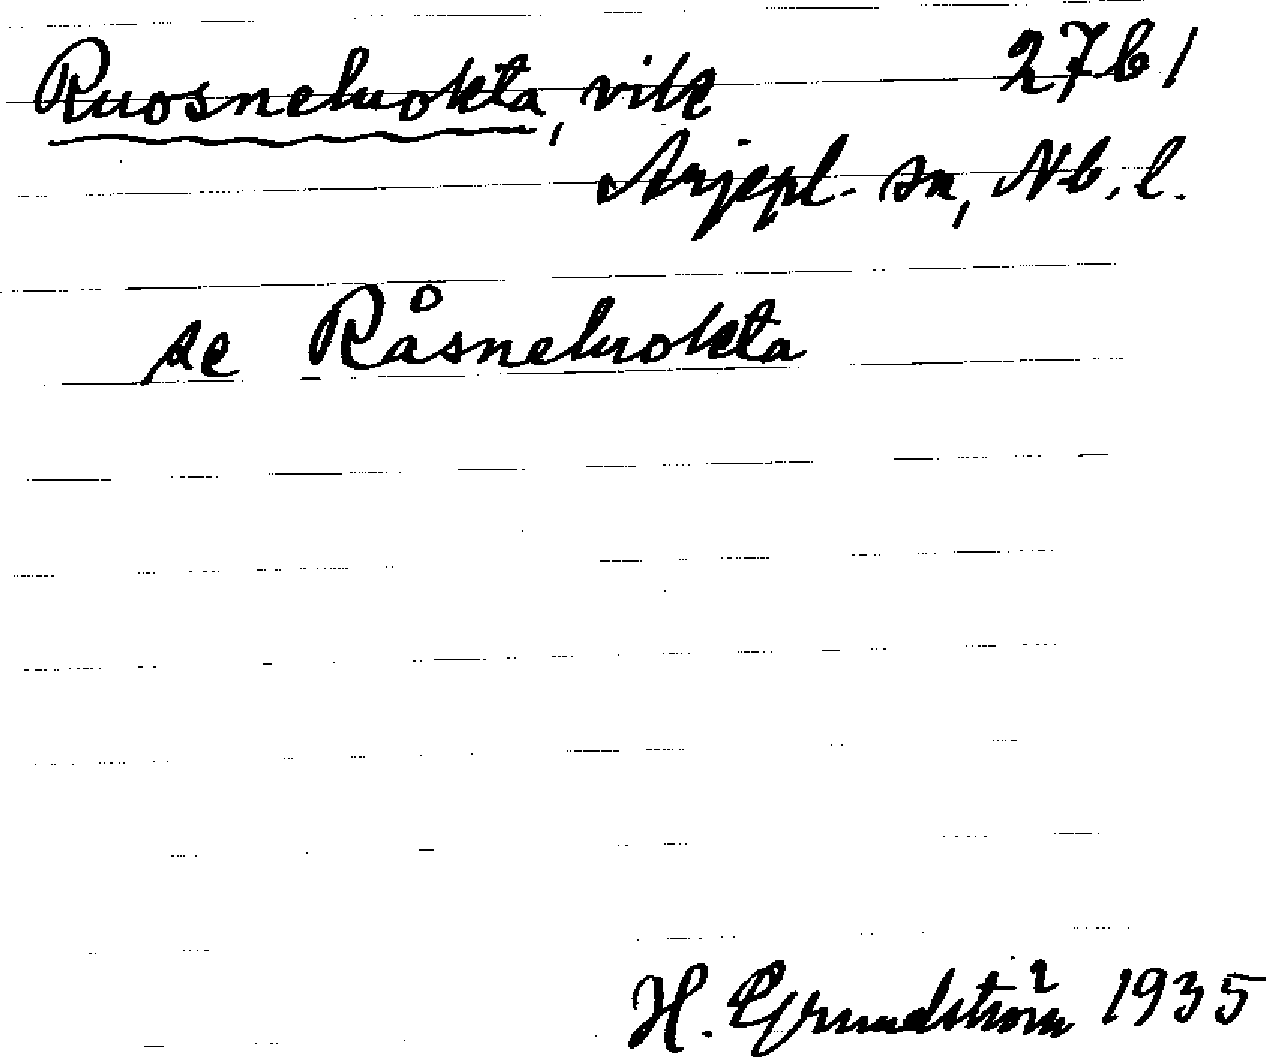 Ruosneluokta, vik 27b1
Arjepl. sn, Nb. l.
se Råsneluokta
H. Grundström 1935